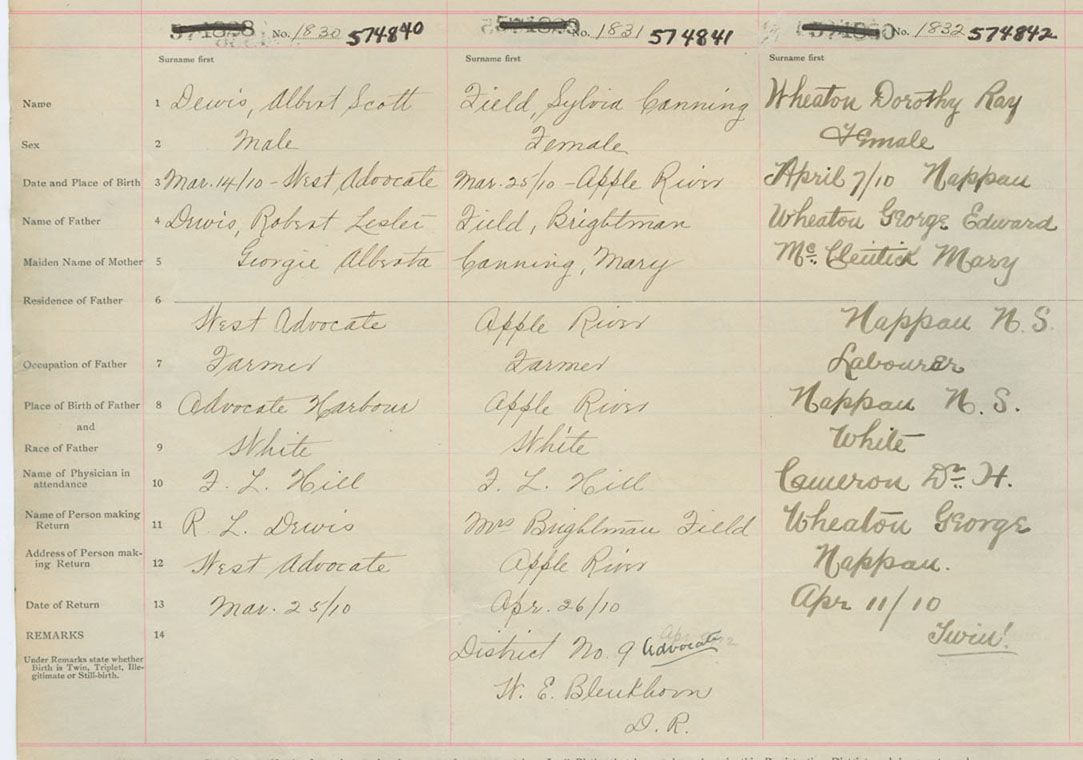 No. 1830 574840
No. 1831 574841
No. 1832 574842
Surname first
Surname first
Surname first
Name 1 Dewis, Albert Scott Field, Sylvia Canning Wheaton Dorothy Ray
Sex 2 Male Female Female
Date and Place of Birth 3 Mar. 14/10 - West Advocate Mar. 25/10 - Apple River April 7/10 Nappan
Name of Father 4 Dewis, Robert Leslie Field, Brightman Wheaton George Edward
Maiden Name of Mother 5 Georgie Alberta Canning, Mary Mary
Residence of Father 6
West Advocate Apple River Nappan N.S.
Occupation of Father 7 Farmer Farmer Labourer
Place of Birth of Father 8 Advocate Harbour Apple River Nappan N.S.
and
Race of Father 9 White White White
Name of Physician in
attendance 10 F. L. Hill F. L. Hill Cameron Dr. H.
Name of Person making
Return 11 R. L. Dewis Mrs Brightman Field Wheaton George
Address of Person mak-
ing Return 12 West Advocate Apple River Nappan.
Date of Return 13 Mar. 25/10 Apr. 26/10 Apr 11/10
REMARKS 14 Twin!
Under Remarks state whether
Birth is Twin, Triplet, Ille-
gitimate or Still-birth.
District No. 9 Advocate
W. E. Blenkhorn
D. R.